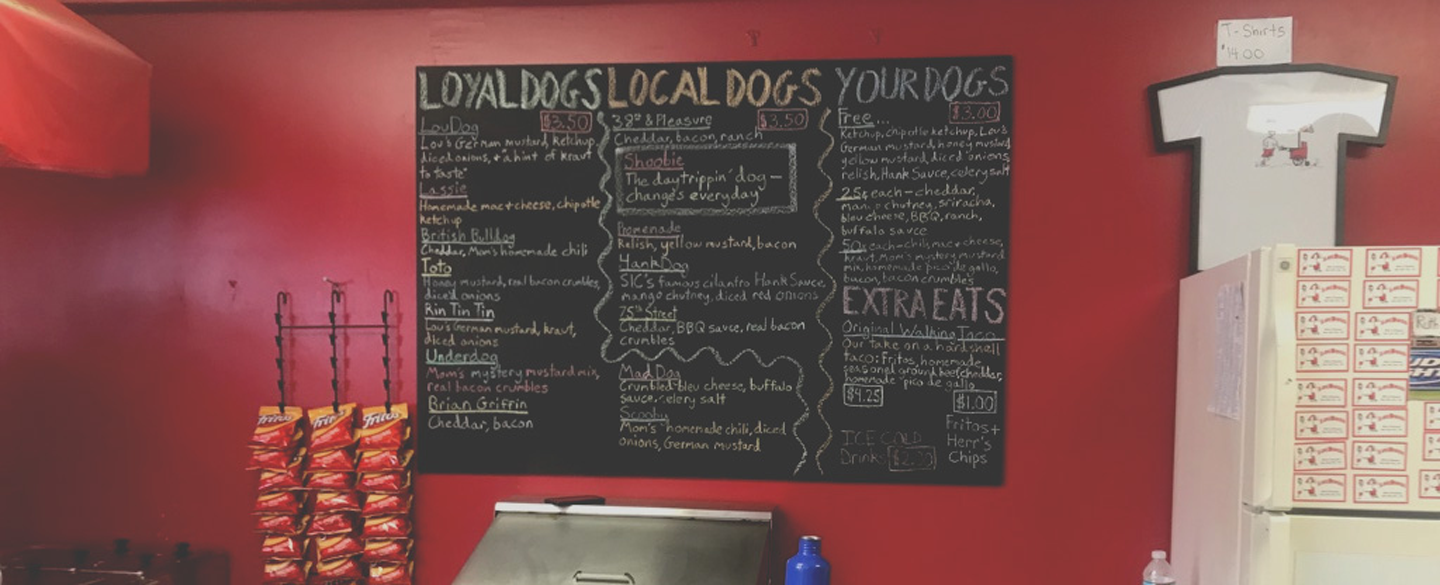 LOYAL DOGS
$3.50
LouDog
Lou's German mustard, ketchup,
diced onions, + a hint of kraut
"to taste"
Lassie
Homemade mac + cheese, chipotle
ketchup
British Bulldog
Cheddar, Mom's homemade chili
Toto
Honey mustard, real bacon crumbles,
diced onions
Rin Tin Tin
Lou's German mustard, kraut,
diced onions
Underdog
Mom's mystery mustard mix,
real bacon crumbles
Brian Griffin
Cheddar, bacon
LOCAL DOGS
38th & Pleasure
$3.50
Cheddar, bacon, ranch
Shoobie
The daytrippin' dog -
changes everyday
Promenade
Relish, yellow mustard, bacon
HankDog
SIC's famous cilantro Hank Sauce,
mango chutney, diced red onions
75th Street
Cheddar, BBQ sauce, real bacon
crumbles
Mad Dog
Crumbled bleu cheese, buffalo
sauce, celery salt
Scooby
Mom's homemade chili, diced
onions, German mustard
YOUR DOGS
Free...
$3.00
Ketchup, chipotle ketchup, Lou's
German mustard, honey mustard
yellow mustard, diced onions,
relish, Hank Sauce, celery salt
25¢ each - cheddar,
mango chutney, sriracha,
bleu cheese, BBQ, ranch,
buffalo sauce
50¢ each - chili, mac + cheese,
kraut, Mom's mystery mustard
mix, homemade pico de gallo,
bacon, bacon crumbles
EXTRA EATS
Original Walking Taco
Our take on a hard shell
taco: Fritos, homemade
seasoned ground beef, cheddar,
homemade pico de gallo
$4.25
$1.00
Fritos +
Herr's
Chips
ICE COLD
Drinks $2.00
T-Shirts
$14.00
Fritos
Fritos
Fritos